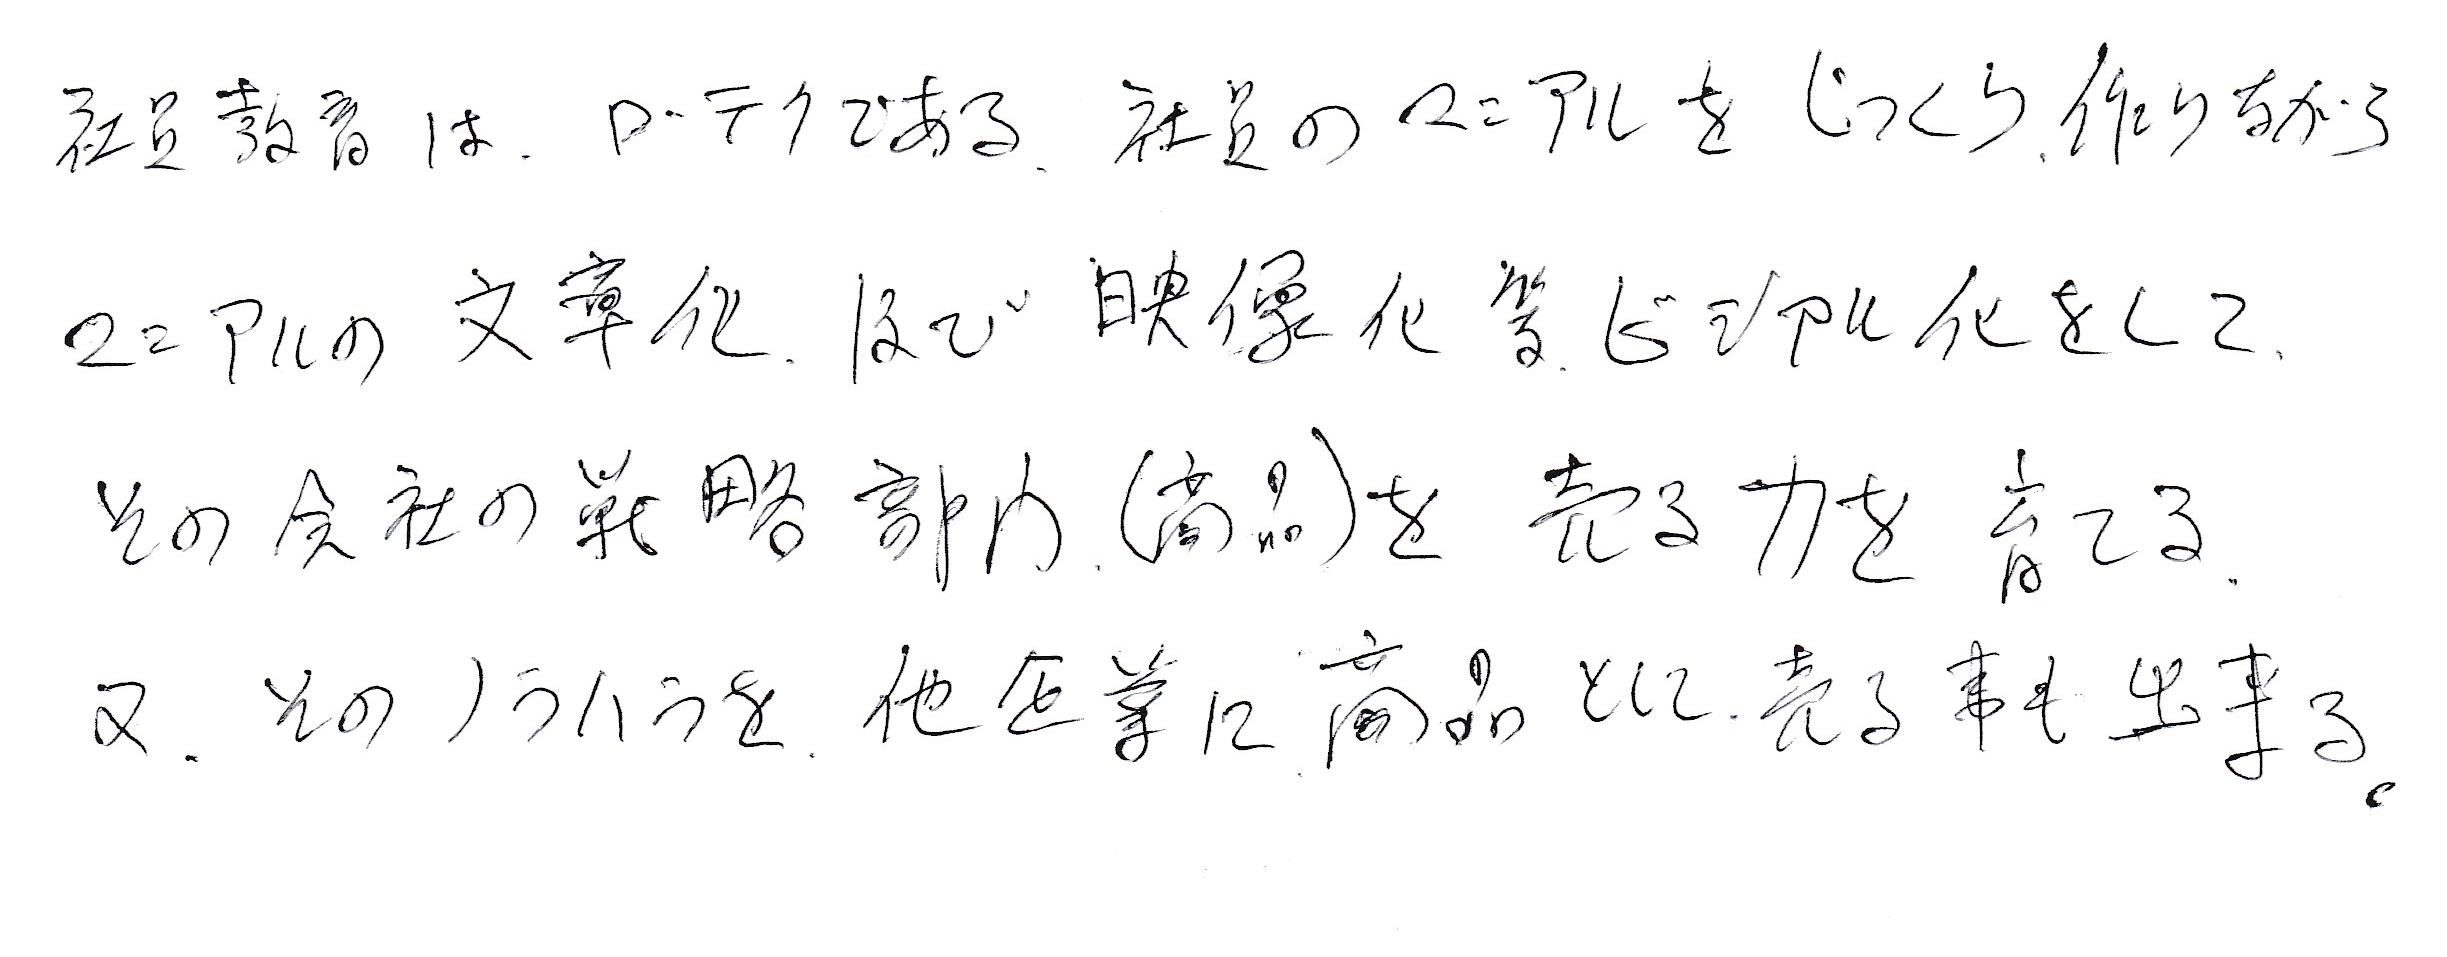 社員教育は、ローテクである、社員のマニアルをじっくり、作りながら
マニアルの文章化、ほび映像化等、ビジアル化をして、
その会社の戦略部内、(商品)を売る力を育てる、
又、そのノウハウを、他企業に商品として、売る事も出来る。